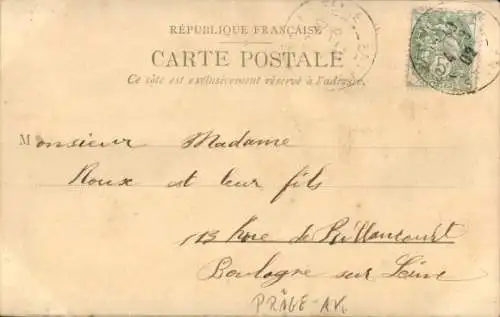 RÉPUBLIQUE FRANÇAISE
CARTE POSTALE
Ce côté est exclusivement réservé à l'adresse.
Monsieur Madame
Roux et leur fils
113 Rue de Billancourt
Boulogne sur Seine